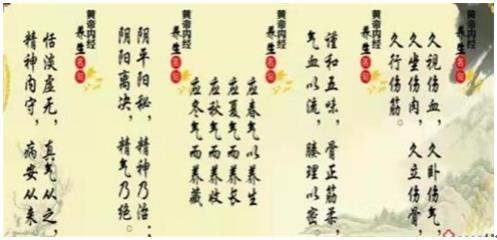 久视伤血，久卧伤气，
久坐伤肉，久立伤骨，
久行伤筋。
黄帝内经
养生名句
谨和五味，骨正筋柔，
气血以流，腠理以密。
黄帝内经
养生名句
应春气以养生
应夏气而养长
应秋气而养收
应冬气而养藏
黄帝内经
养生名句
阴平阳秘，精神乃治；
阴阳离决，精气乃绝。
黄帝内经
养生名句
恬淡虚无，真气从之，
精神内守，病安从来。